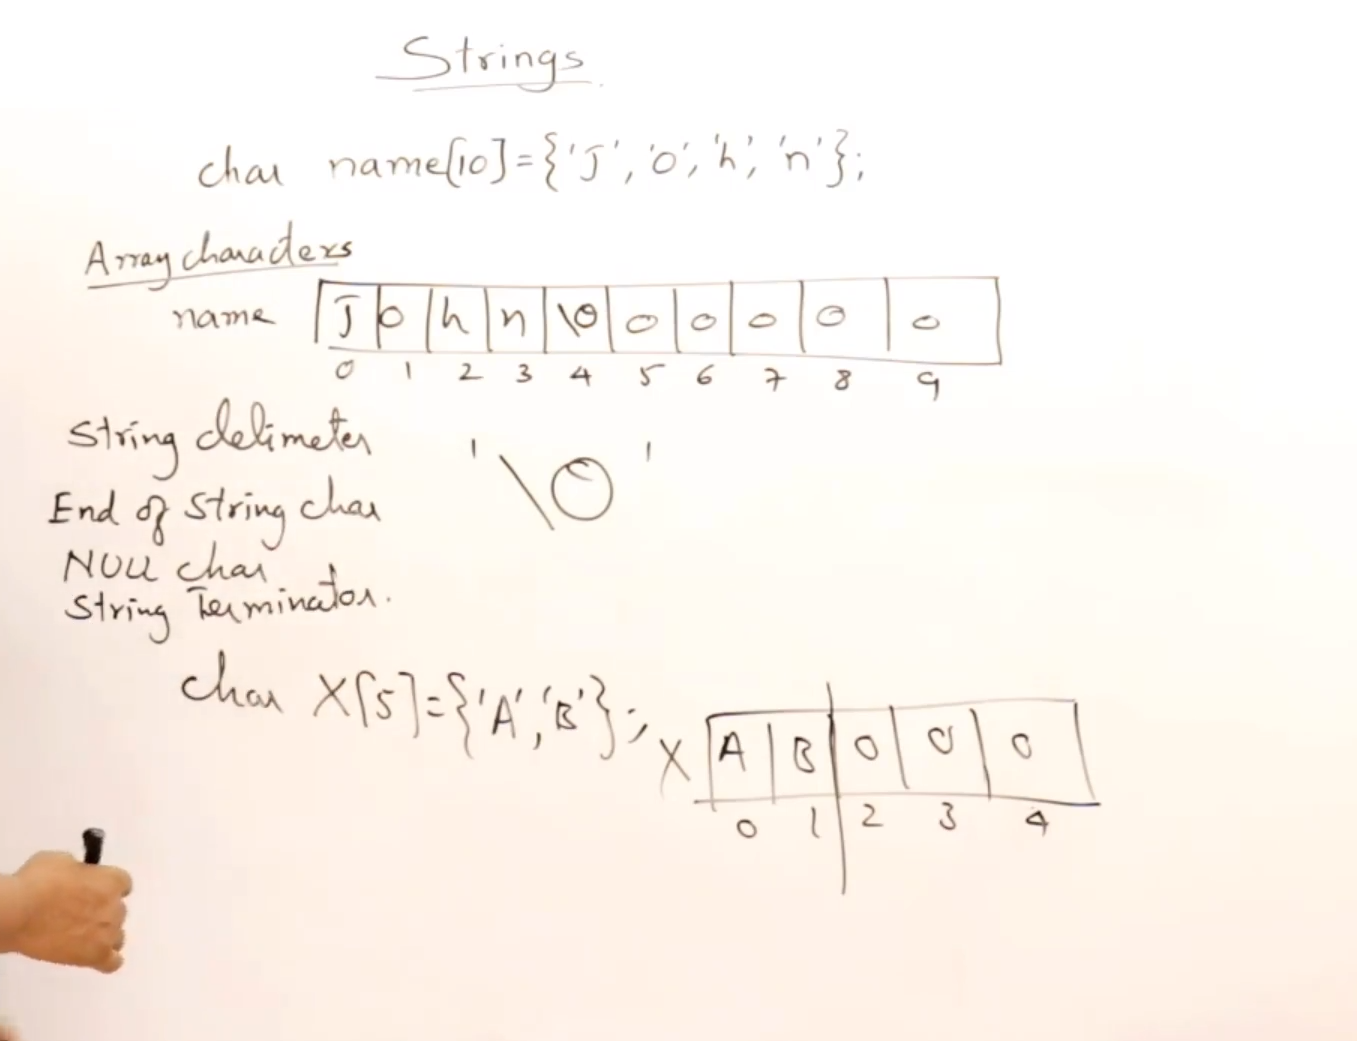 Strings
char name[10]={'J','o','h','n'};
Array characters
name J o h n \0 0 0 0 0 0
0 1 2 3 4 5 6 7 8 9
String delimeter
'\0'
End of string char
NULL char
String Terminator.
char X[5]={'A','B'};
X A B 0 0 0
0 1 2 3 4